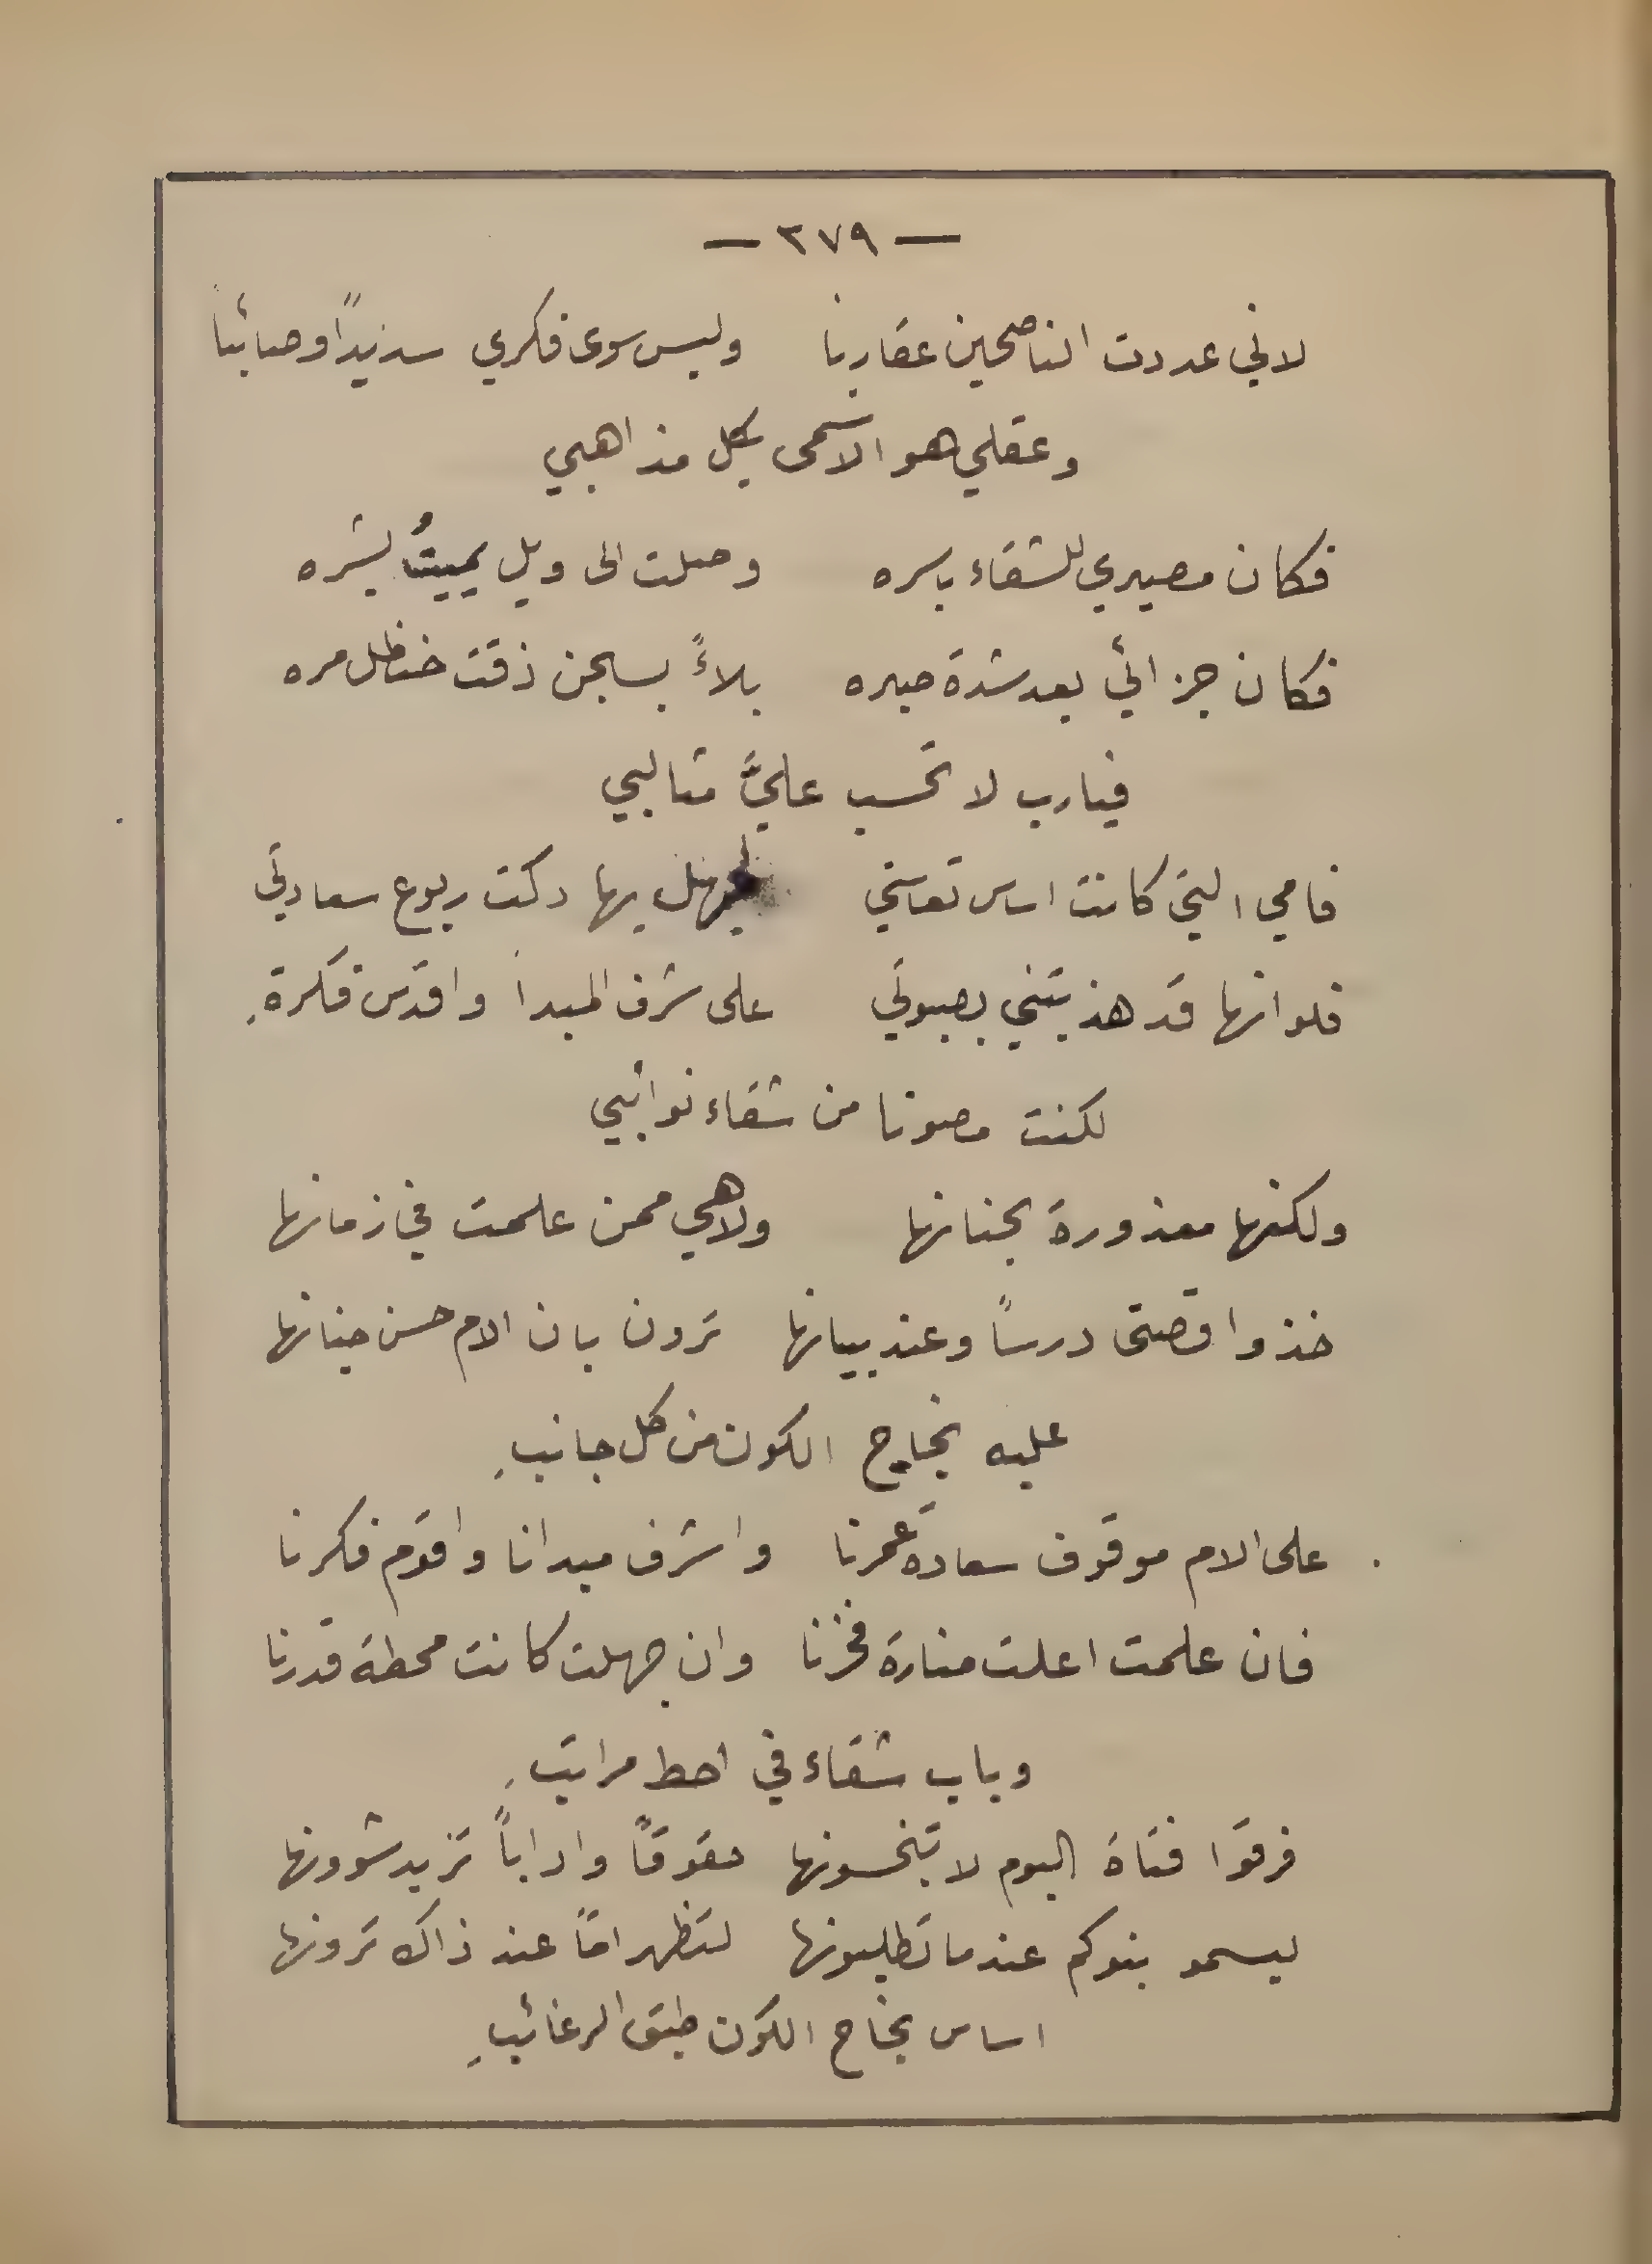 — ٣٧٩ —
لاني عددت الناصحين عقاربا وليس سوى فكري سديداً وصائبا
وعقلي هو الاسمى بكل مذاهبي
فكان مصيري للشقاء باسره وصلت الى ويل يميتُ بشره
فكان جزائي بعد شدة صبره بلاءً بسجن ذقت حنظل مره
فيارب لا تحسب عليَّ مثالبي
فامي التي كانت اساس تعاستي لجهل بها دكت ربوع سعادتي
فلو انها قد هذبتني بصبوتي على شرف المبدا واقدس فكرةِ
لكنت مصونا من شقاء نوائبي
ولكنها معذورة بجنانها ولا هي ممن علمت في زمانها
خذوا قصتى درساً وعند بيانها ترون بان الام حسن جنانها
عليه نجاح الكون من كل جانبِ
على الام موقوف سعادة عمرنا واشرف مبدانا واقوم فكرنا
فان علمت اعلت منارة فخرنا وان جهلت كانت محطة قدرنا
وباب شقاء في احط مراتبِ
فرقوا فتاة اليوم لا تبخسونها حقوقاً واداباً تزيد شوونها
ليسمو بنوكم عندما تطلبونها لتظهر امّاً عند ذاك ترونها
اساس نجاح الكون طبق الرغائبِ